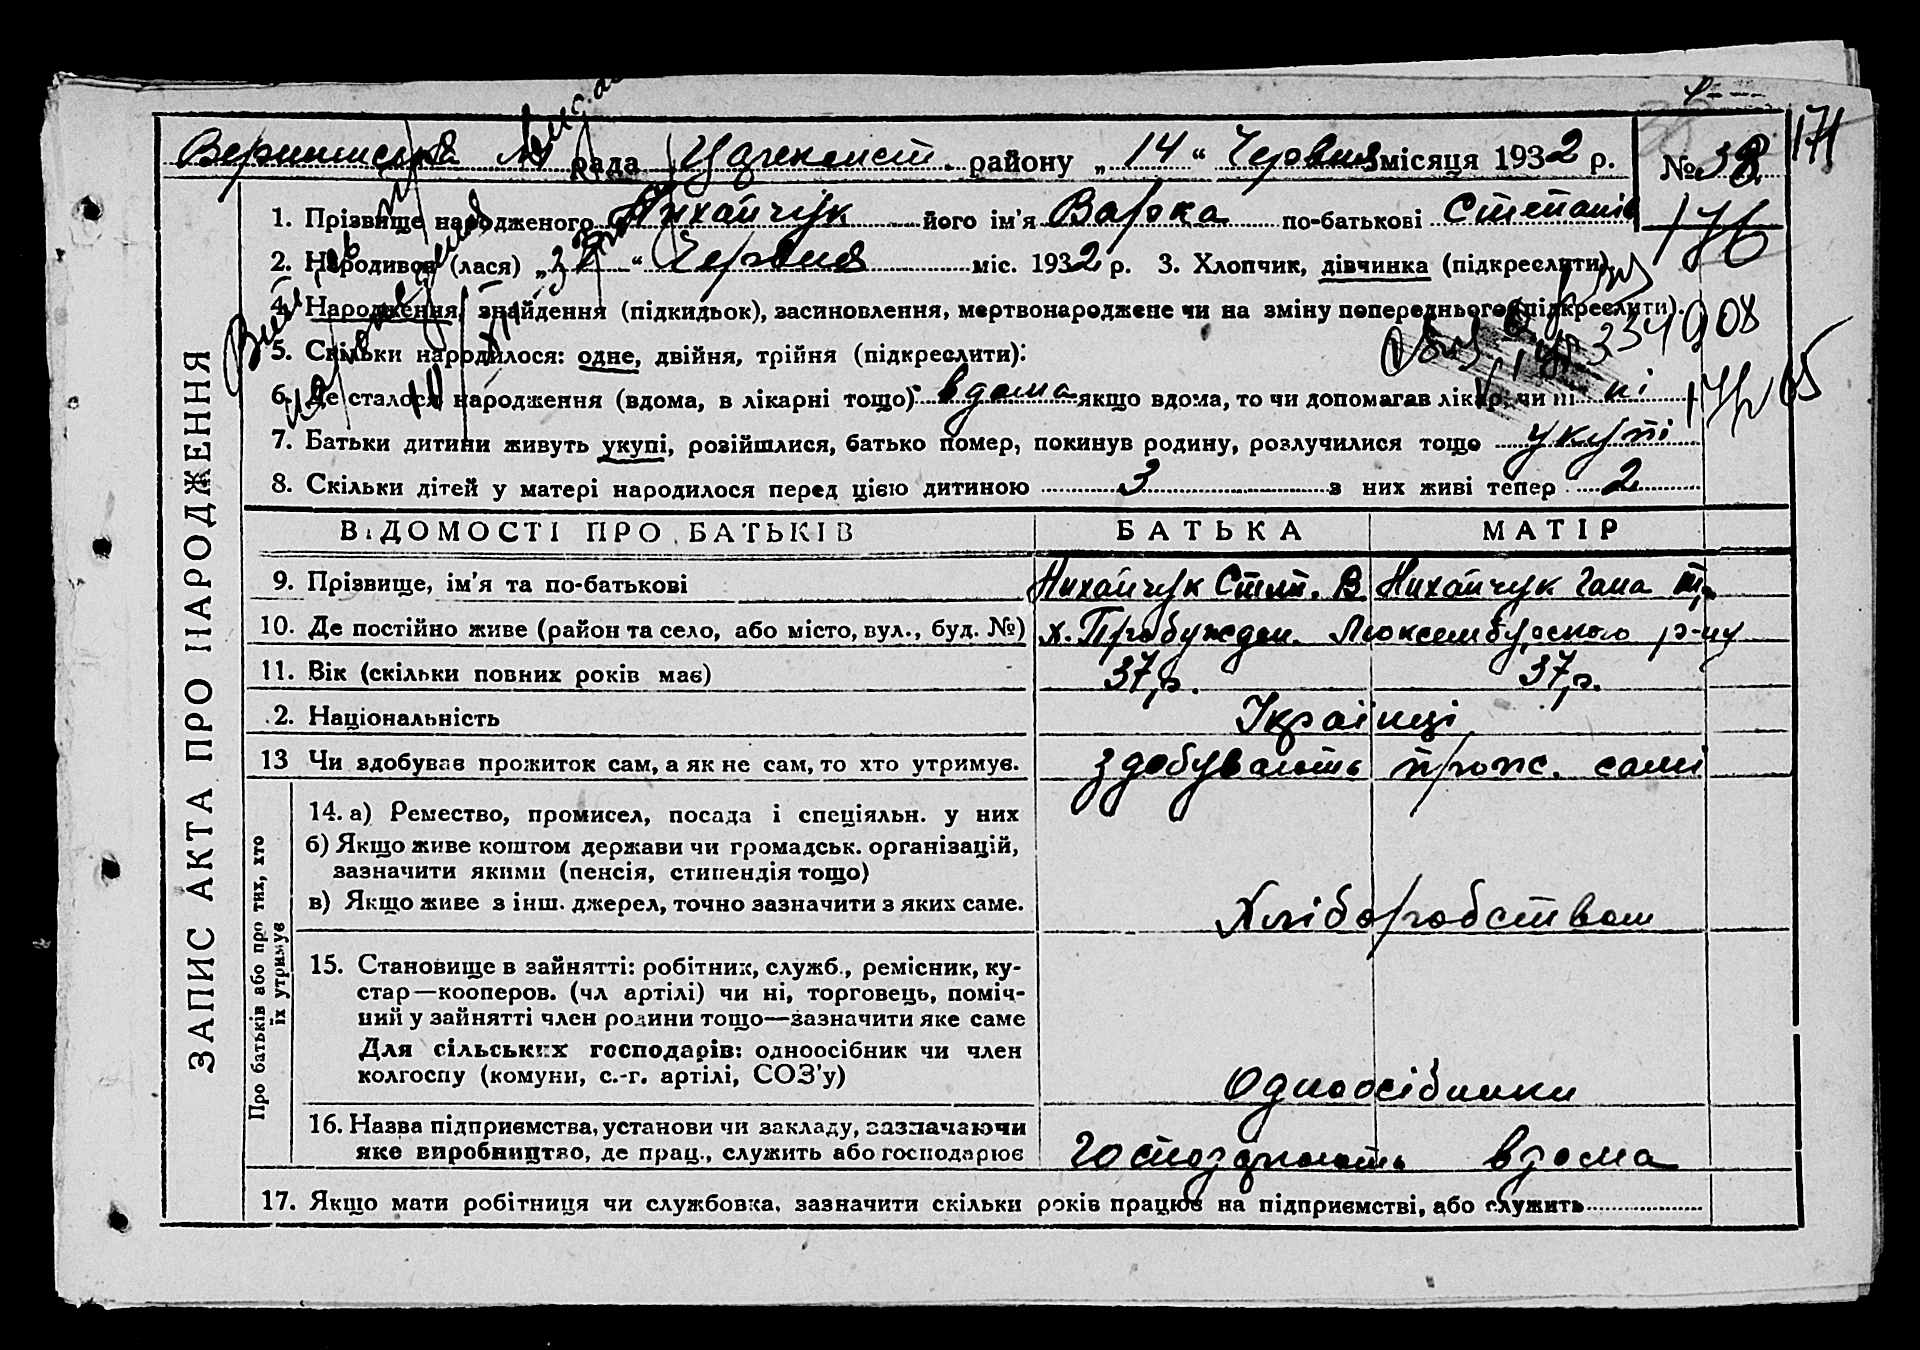 рада Царекост. району „ 14 “ Червня місяця 1932 р. № 38
171
1. Прізвище народженого Нихайчук його ім’я Варка по-батькові Степанів
176
2. Народився (лася) „ “ Червня міс. 1932 р. 3. Хлопчик, дівчинка (підкреслити)
4. Народження, знайдення (підкидьок), засиновлення, мертвонароджене чи на зміну попереднього (підкреслити).
5. Скільки народилося: одне, двійня, трійня (підкреслити):
334908
6. Де сталося народження (вдома, в лікарні тощо) вдома якщо вдома, то чи допомагав лікар чи ні ні
7. Батьки дитини живуть укупі, розійшлися, батько помер, покинув родину, розлучилися тощо укупі
8. Скільки дітей у матері народилося перед цією дитиною 3 з них живі тепер 2
ЗАПИС АКТА ПРО НАРОДЖЕННЯ
ВІДОМОСТІ ПРО БАТЬКІВ БАТЬКА МАТІР
9. Прізвище, ім’я та по-батькові Нихайчук Степ. В Нихайчук Гана
10. Де постійно живе (район та село, або місто, вул., буд. №) х. Пробужден. Люксембурского р-ну
11. Вік (скільки повних років має) 37 р. 37 р.
2. Національність Українці
13 Чи здобував прожиток сам, а як не сам, то хто утримує. здобувають прож. самі
Про батьків або про тих, хто їх утримує
14. а) Ремество, промисел, посада і спеціяльн. у них
б) Якщо живе коштом держави чи громадськ. організацій,
зазначити якими (пенсія, стипендія тощо)
в) Якщо живе з інш. джерел, точно зазначити з яких саме. Хліборобством
15. Становище в зайнятті: робітник, служб., ремісник, ку-
стар—кооперов. (чл артілі) чи ні, торговець, поміч-
ний у зайнятті член родини тощо—зазначити яке саме
Для сільських господарів: одноосібник чи член
колгоспу (комуни, с.-г. артілі, СОЗ’у) Одноосібники
16. Назва підприємства, установи чи закладу, зазначаючи
яке виробництво, де прац., служить або господарює Господарюють вдома
17. Якщо мати робітниця чи службовка, зазначити скільки років працює на підприємстві, або служить